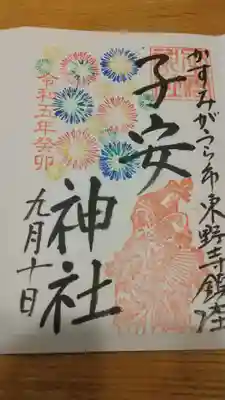 かすみがうら市東野寺鎮座
子安神社
令和五年癸卯
九月十日